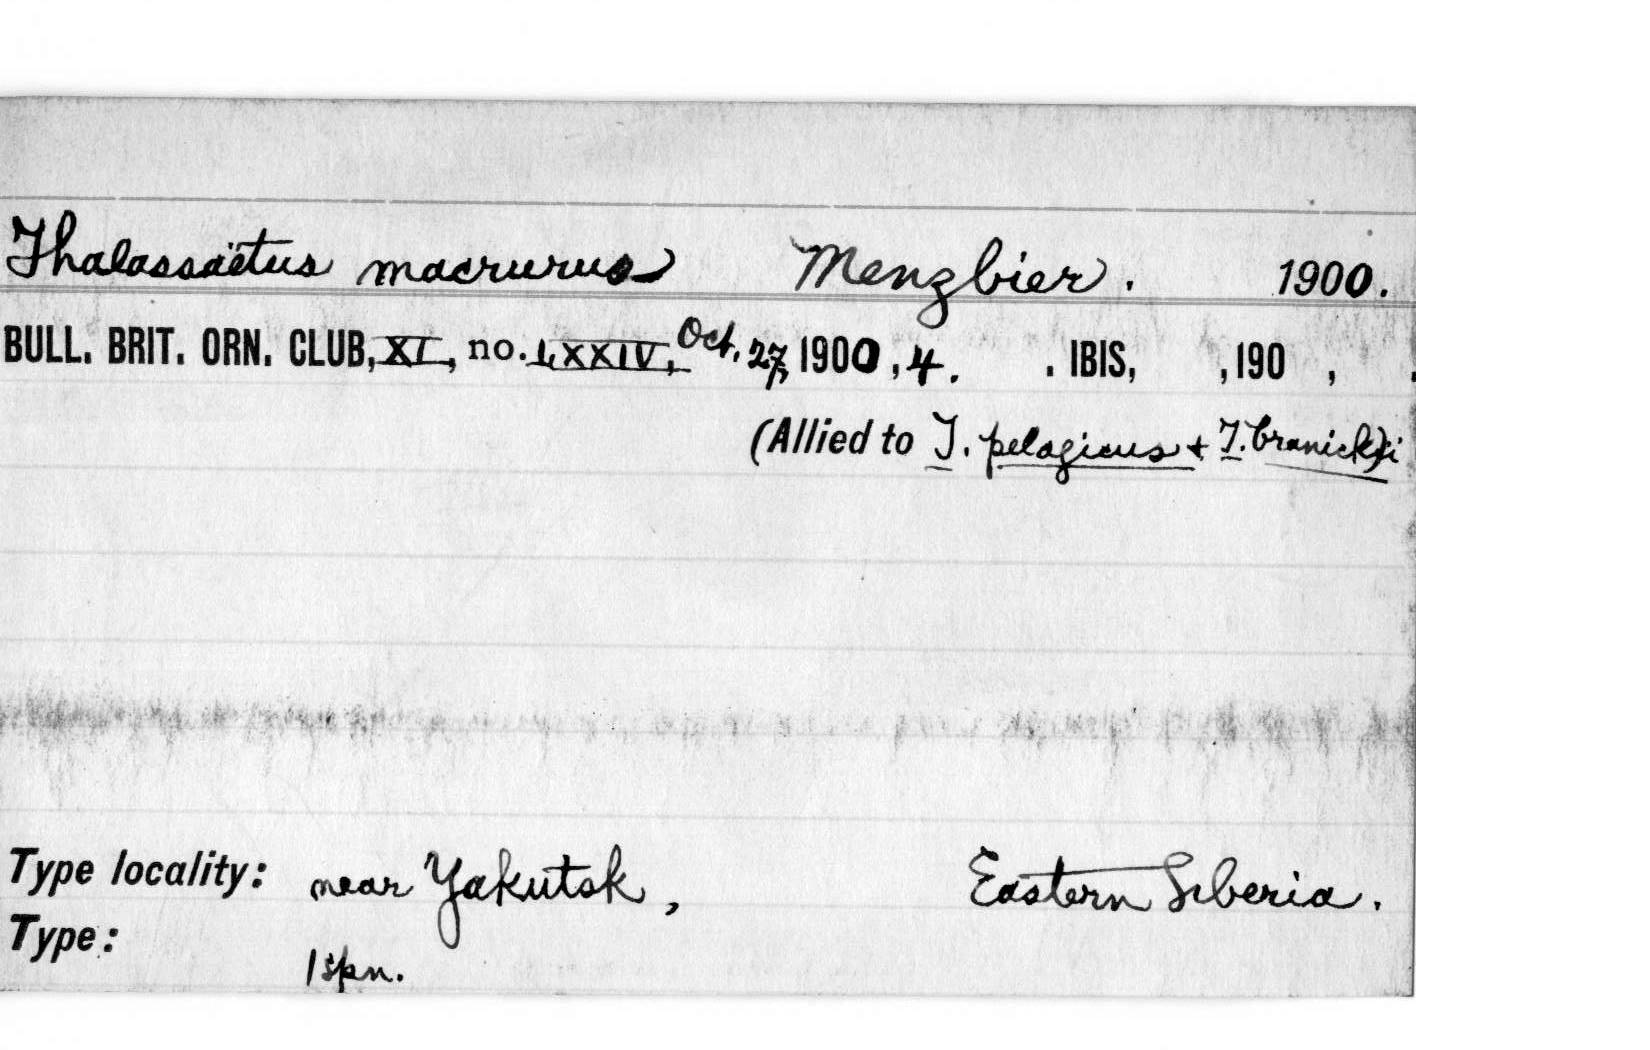 Thalassaëtus macrurus Menzbier. 1900.
BULL. BRIT. ORN. CLUB, XI, no. LXXIV, Oct. 27, 1900, 4. . IBIS, , 190 , .
(Allied to T. pelagicus + T. branickii)
Type locality: near Yakutsk, Eastern Siberia.
Type:
1 spn.